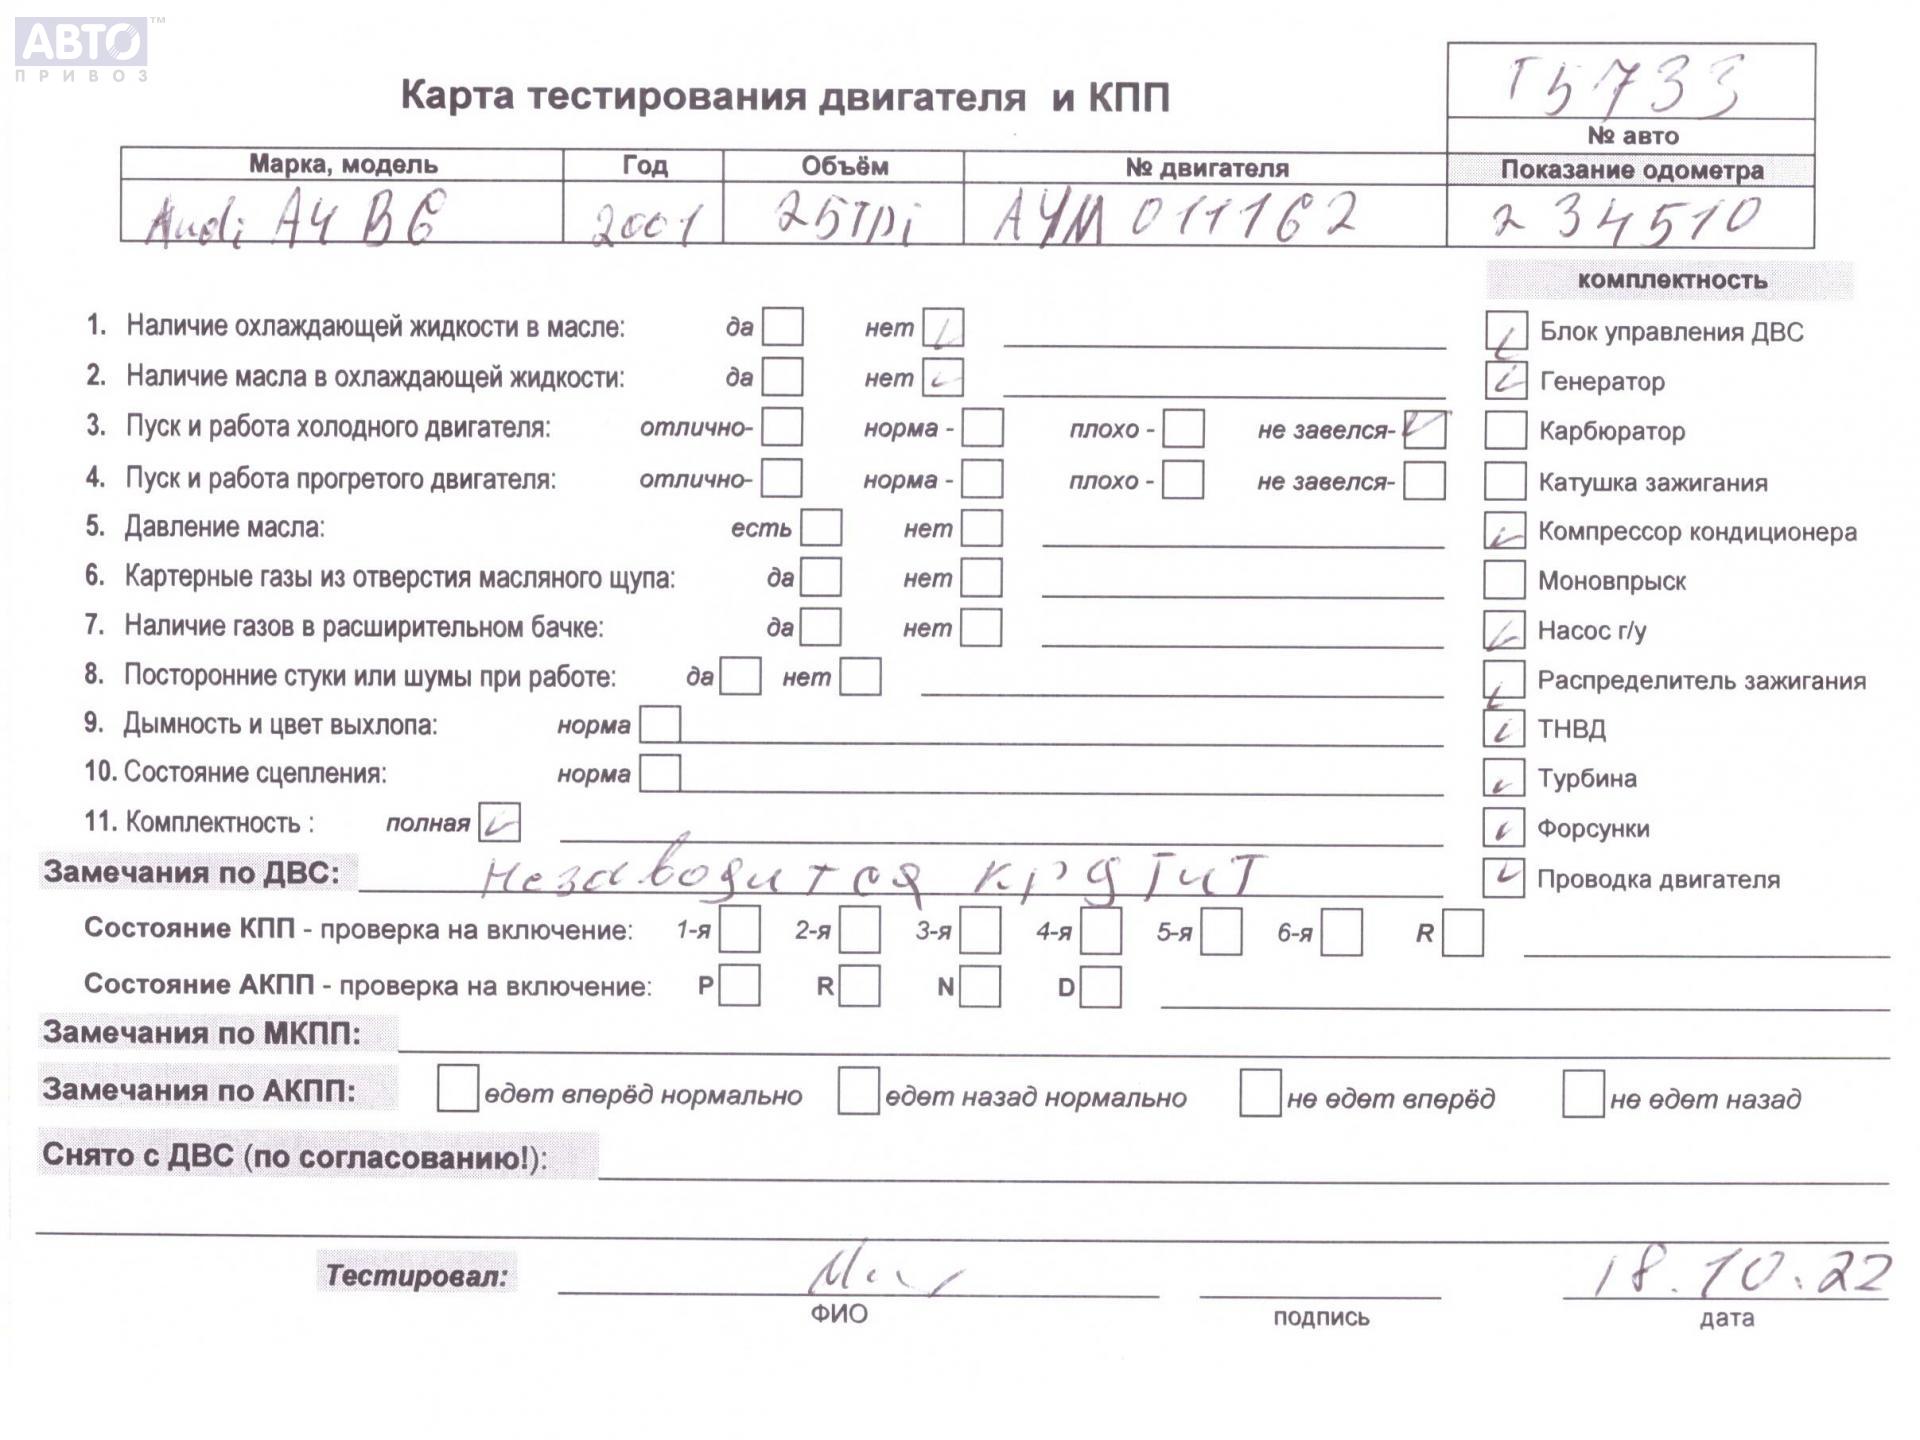 АВТО ™
ПРИВОЗ
Карта тестирования двигателя и КПП
Т5733
№ авто
Марка, модель Год Объём № двигателя Показание одометра
Audi A4 B6 2001 25TDi AYM 011162 234510
комплектность
1. Наличие охлаждающей жидкости в масле: да нет
Блок управления ДВС
2. Наличие масла в охлаждающей жидкости: да нет
Генератор
3. Пуск и работа холодного двигателя: отлично- норма - плохо - не завелся-
Карбюратор
4. Пуск и работа прогретого двигателя: отлично- норма - плохо - не завелся-
Катушка зажигания
5. Давление масла: есть нет
Компрессор кондиционера
6. Картерные газы из отверстия масляного щупа: да нет
Моновпрыск
7. Наличие газов в расширительном бачке: да нет
Насос г/у
8. Посторонние стуки или шумы при работе: да нет
Распределитель зажигания
9. Дымность и цвет выхлопа: норма
ТНВД
10. Состояние сцепления: норма
Турбина
11. Комплектность : полная
Форсунки
Замечания по ДВС: незаводится
Проводка двигателя
Состояние КПП - проверка на включение: 1-я 2-я 3-я 4-я 5-я 6-я R
Состояние АКПП - проверка на включение: P R N D
Замечания по МКПП:
Замечания по АКПП: едет вперёд нормально едет назад нормально не едет вперёд не едет назад
Снято с ДВС (по согласованию!):
Тестировал: 18.10.22
ФИО подпись дата